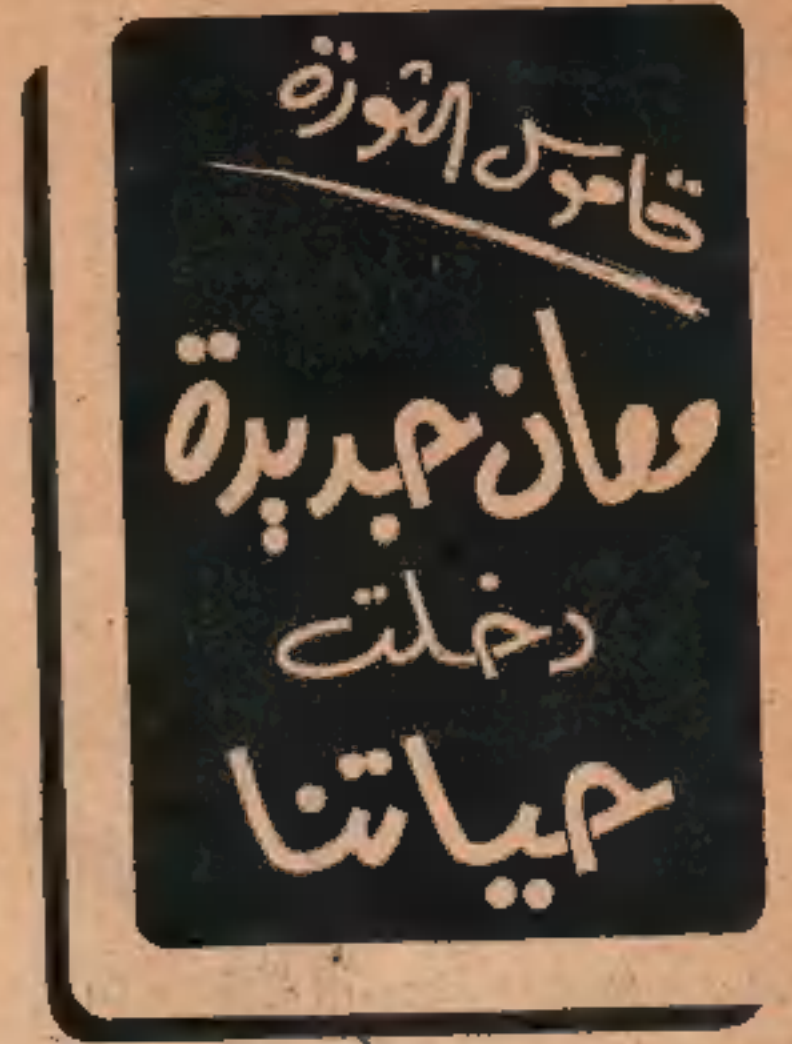 قاموس الثورة
معان جديدة
دخلت
حياتنا